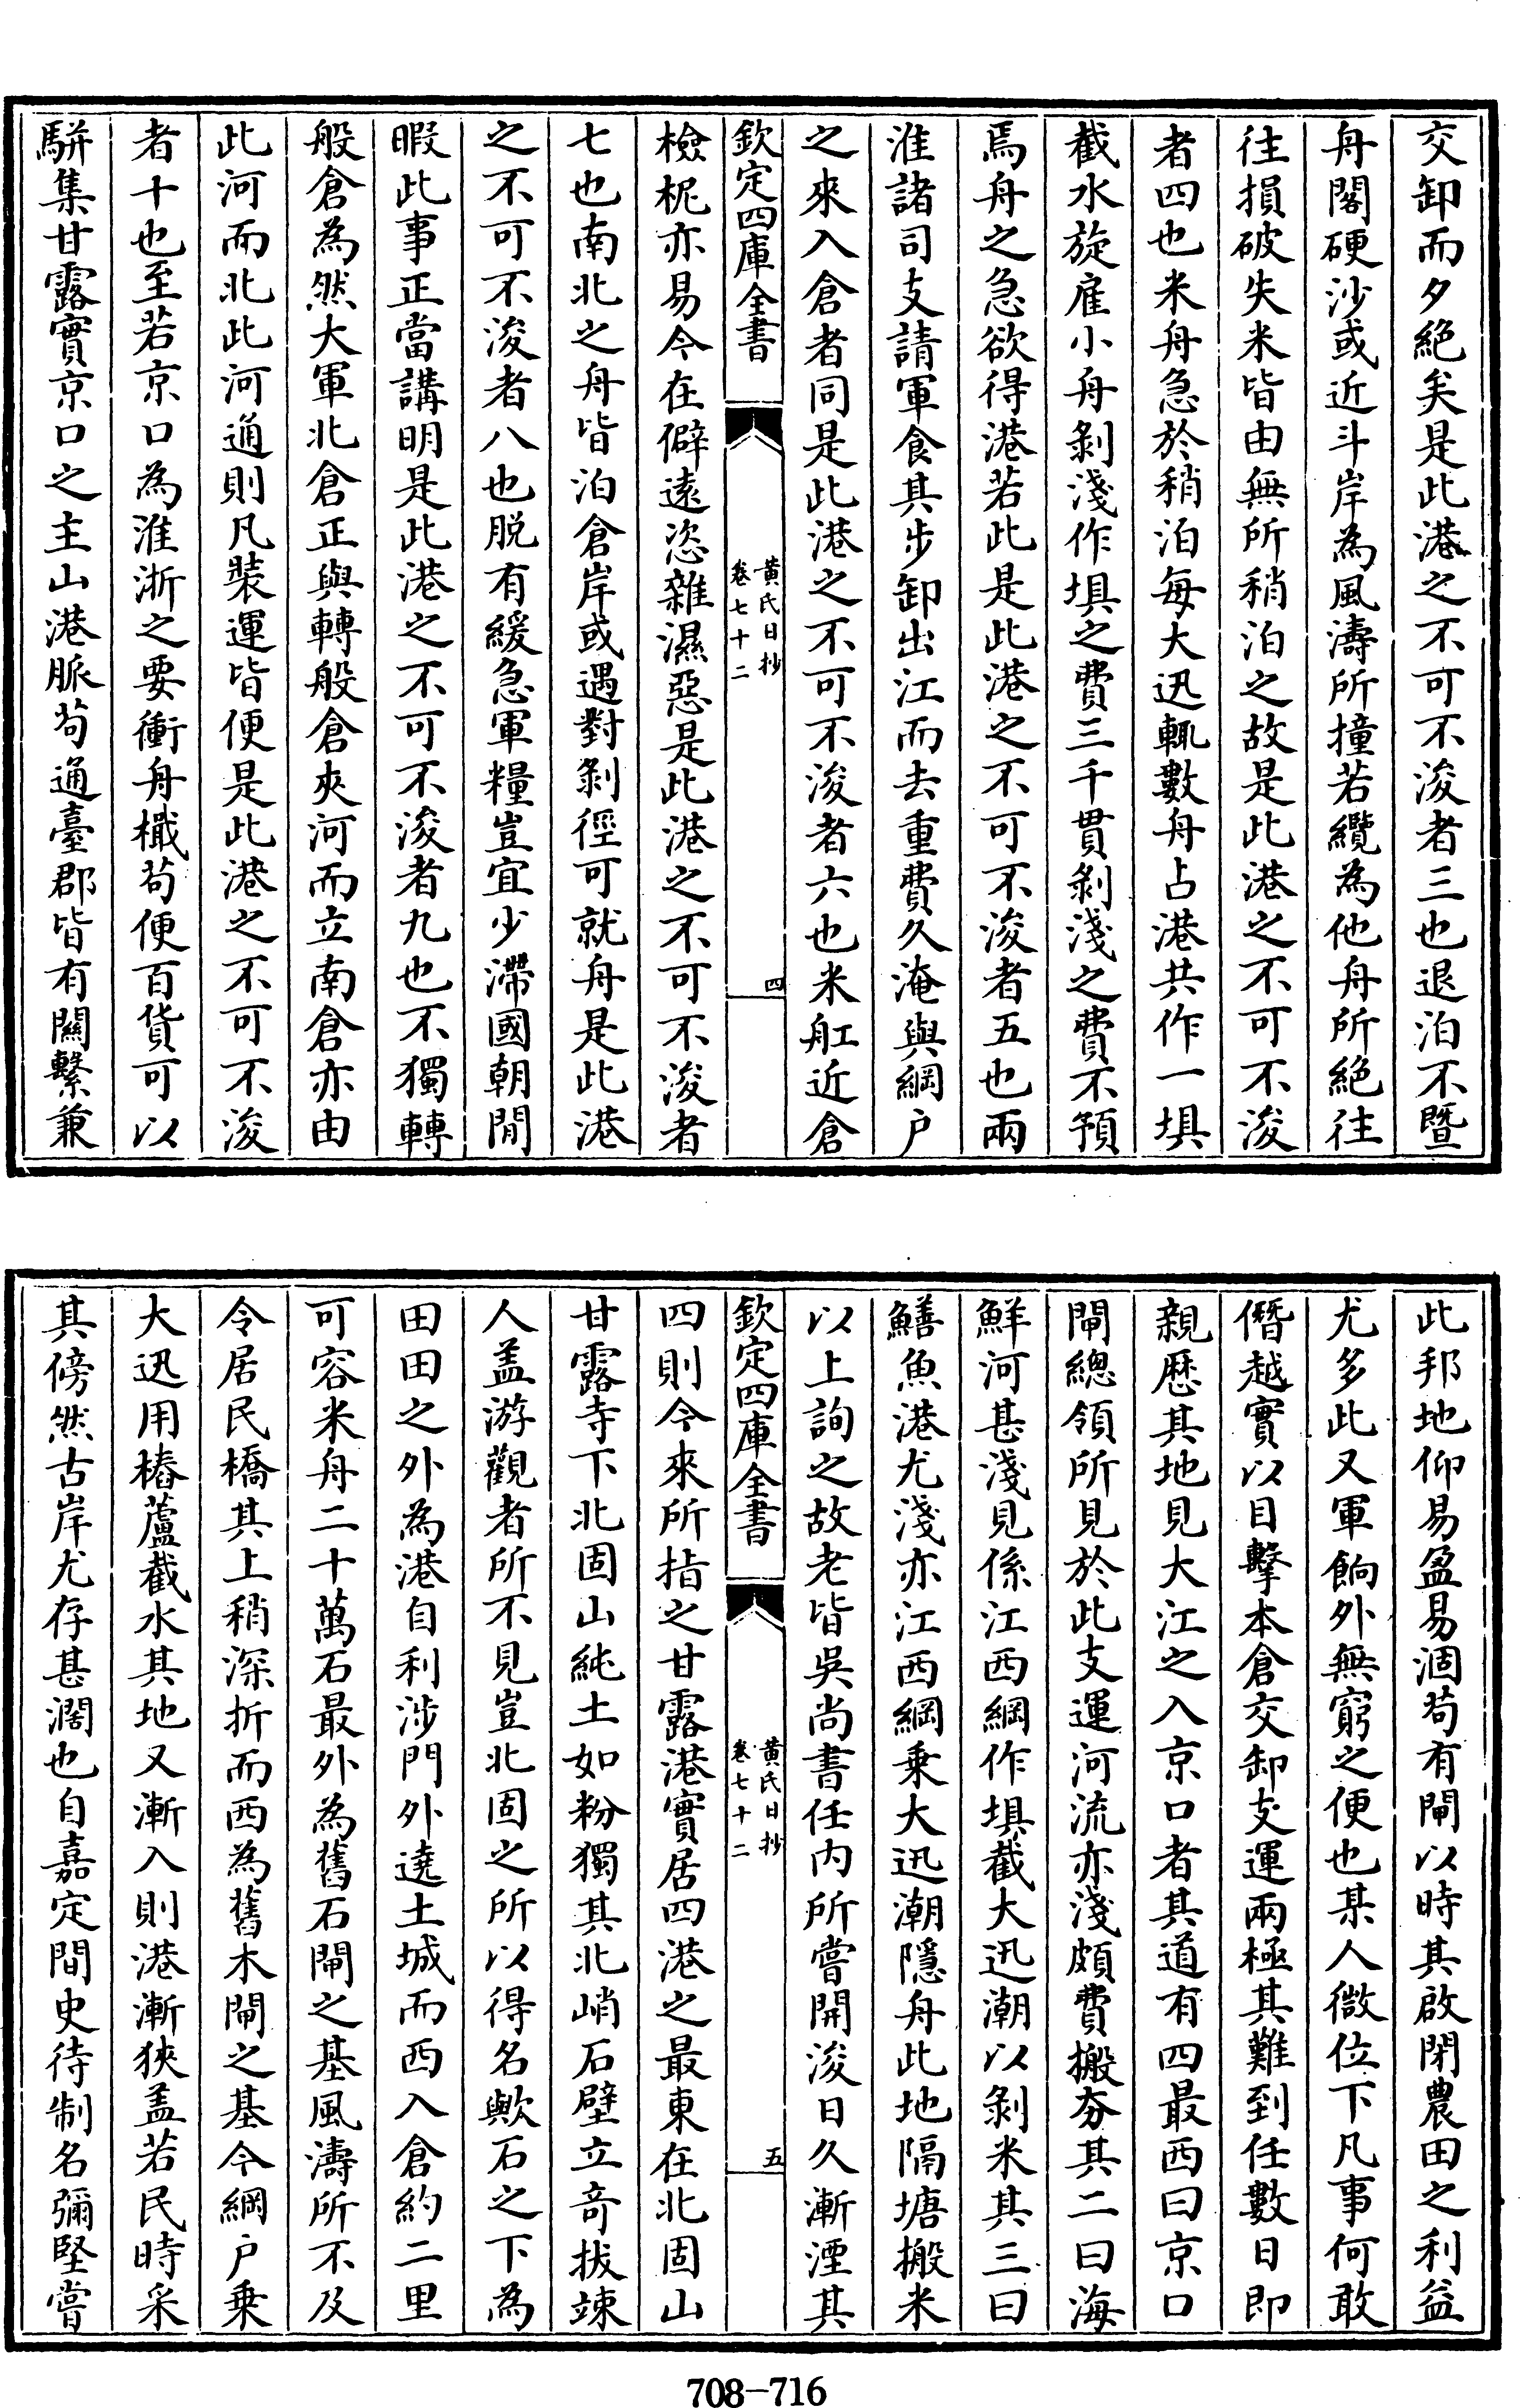 交卸而夕絶矣是此港之不可不浚者三也退泊不曁
舟閣硬沙或近斗岸為風濤所撞若纜為他舟所絶往
往損破失米皆由無所稍泊之故是此港之不可不浚
者四也米舟急於稍泊每大迅輒數舟占港共作一埧
截水旋雇小舟剝淺作埧之費三千貫剝淺之費不預
焉舟之急欲得港若此是此港之不可不浚者五也兩
淮諸司支請軍食其步卸出江而去重費久淹與綱户
之來入倉者同是此港之不可不浚者六也米舡近倉
欽定四庫全書
黄氏日抄
卷七十二
四
檢柅亦易今在僻逺恣雜濕惡是此港之不可不浚者
七也南北之舟皆泊倉岸或遇對剝徑可就舟是此港
之不可不浚者八也脱有緩急軍糧豈宜少滯國朝閒
暇此事正當講明是此港之不可不浚者九也不獨轉
般倉為然大軍北倉正與轉般倉夾河而立南倉亦由
此河而北此河通則凡裝運皆便是此港之不可不浚
者十也至若京口為淮浙之要衝舟檝茍便百貨可以
駢集甘露實京口之主山港脈茍通臺郡皆有關繫兼
此邦地仰易盈易涸茍有閘以時其啟閉農田之利益
尤多此又軍餉外無窮之便也某人微位下凡事何敢
僭越實以目擊本倉交卸支運兩極其難到任數日即
親歴其地見大江之入京口者其道有四最西曰京口
閘總領所見於此支運河流亦淺頗費搬夯其二曰海
鮮河甚淺見係江西綱作埧截大迅潮以剝米其三曰
鱔魚港尤淺亦江西綱乗大迅潮隱舟此地隔塘搬米
以上詢之故老皆吳尚書任内所嘗開浚日久漸湮其
欽定四庫全書
黄氏日抄
卷七十二
五
四則今來所指之甘露港實居四港之最東在北固山
甘露寺下北固山純土如粉獨其北峭石壁立竒拔竦
人盖游觀者所不見豈北固之所以得名歟石之下為
田田之外為港自利涉門外遶土城而西入倉約二里
可容米舟二十萬石最外為舊石閘之基風濤所不及
令居民橋其上稍深折而西為舊木閘之基今綱户乗
大迅用樁蘆截水其地又漸入則港漸狹盖若民時采
其傍然古岸尤存甚濶也自嘉定間史待制名彌堅嘗
708-716